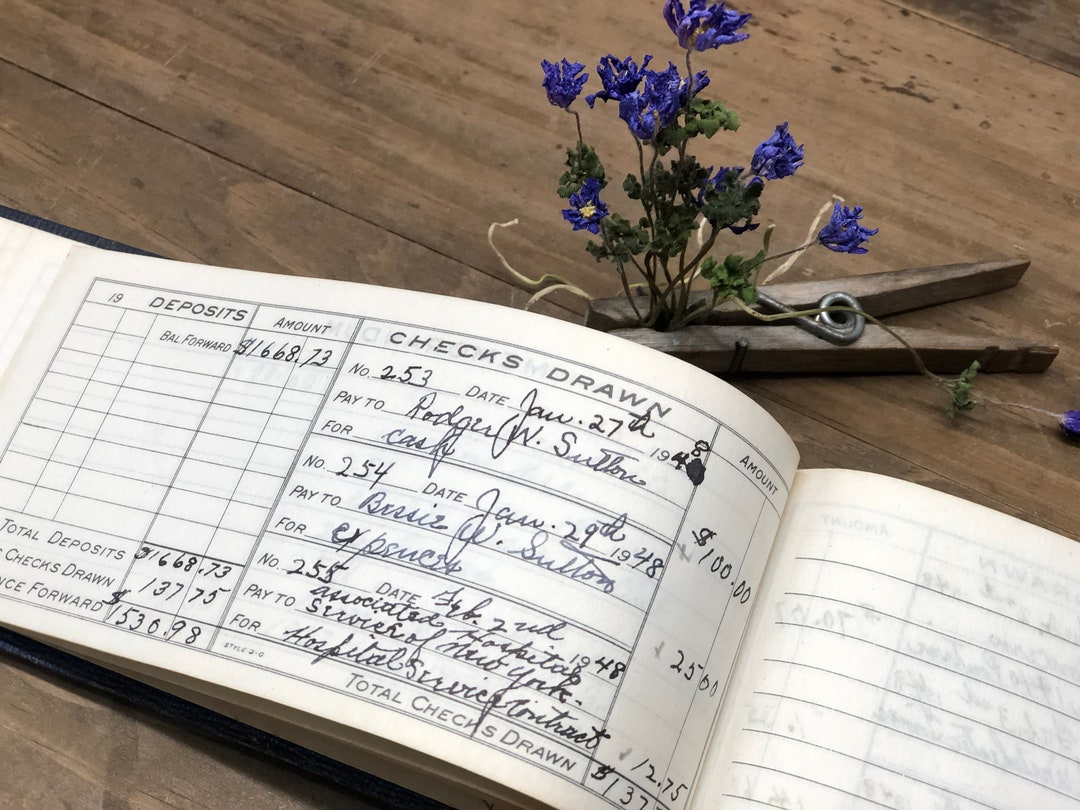 19 DEPOSITS AMOUNT
BAL. FORWARD $1668.73
TOTAL DEPOSITS $1668.73
CHECKS DRAWN 137 75
NCE FORWARD $1530.98
STYLE 2-O
CHECKS DRAWN AMOUNT
No. 253 DATE Jan. 27th 1948
PAY TO Rodger W. Sutton
FOR cash $100.00
No. 254 DATE Jan. 29th 1948
PAY TO Bessie W. Sutton
FOR expences 25 00
No. 255 DATE Feb. 2nd 1948
PAY TO associated Hospital
Service of New York.
FOR Hospital Service Contract 12.75
TOTAL CHECKS DRAWN $137
AMOUNT